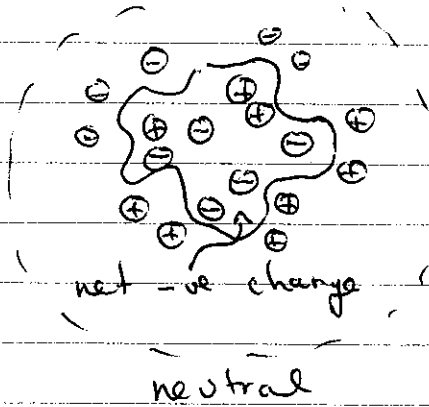 net -ve change
neutral